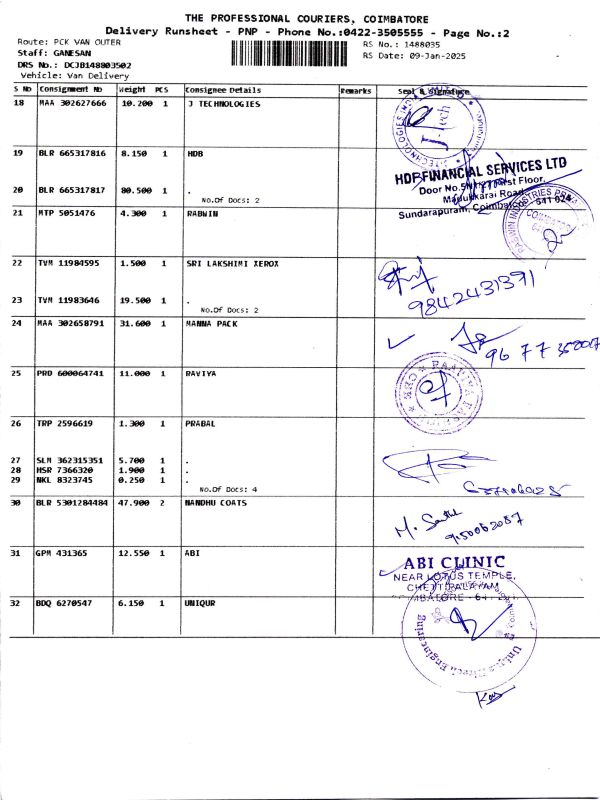 THE PROFESSIONAL COURIERS, COIMBATORE
Delivery Runsheet - PNP - Phone No.:0422-3505555 - Page No.:2
Route: PCK VAN OUTER
RS No.: 1488035
Staff: GANESAN
RS Date: 09-Jan-2025
DRS No.: DCJB148803502
Vehicle: Van Delivery
S No Consignment No Weight PCS Consignee Details Remarks Seal & Signature
18 MAA 302627666 10.200 1 J TECHNOLOGIES
J Tech
19 BLR 665317816 8.150 1 HDB
HDB FINANCIAL SERVICES LTD
First Floor,
Madukkarai Road
Sundarapuram, Coimbatore 641 024
20 BLR 665317817 80.500 1 .
No.Of Docs: 2
21 MTP 5051476 4.300 1 RABWIN
RABWIN INDUSTRIES
22 TVM 11984595 1.500 1 SRI LAKSHIMI XEROX
9842431391
23 TVM 11983646 19.500 1 .
No.Of Docs: 2
24 MAA 302658791 31.600 1 MANNA PACK
25 PRD 600064741 11.000 1 RAVIYA
26 TRP 2596619 1.300 1 PRABAL
27 SLM 362315351 5.700 1 .
28 HSR 7366320 1.900 1 .
29 NKL 8323745 0.250 1 .
No.Of Docs: 4
30 BLR 5301284484 47.900 2 NANDHU COATS
31 GPM 431365 12.550 1 ABI
ABI CLINIC
NEAR LOTUS TEMPLE,
CHETTIPALAYAM
COIMBATORE
32 BDQ 6270547 6.150 1 UNIQUR